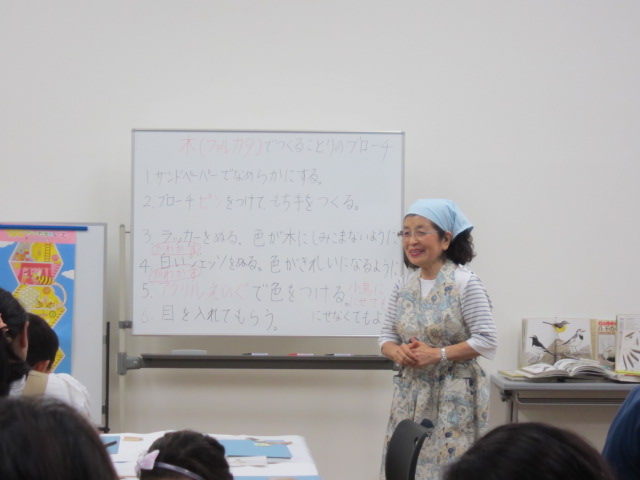 木(フルカタ)でつくることりのブローチ
1. サンドペーパーでなめらかにする。
2. ブローチピンをつけて、もち手をつくる。
3. ラッカーをぬる。色が木にしみこまないように
4. 白いジェッソをぬる。色がきれいになるように
5. アクリルえのぐで色をつける。
6. 目を入れてもらう。
にせなくてもよ